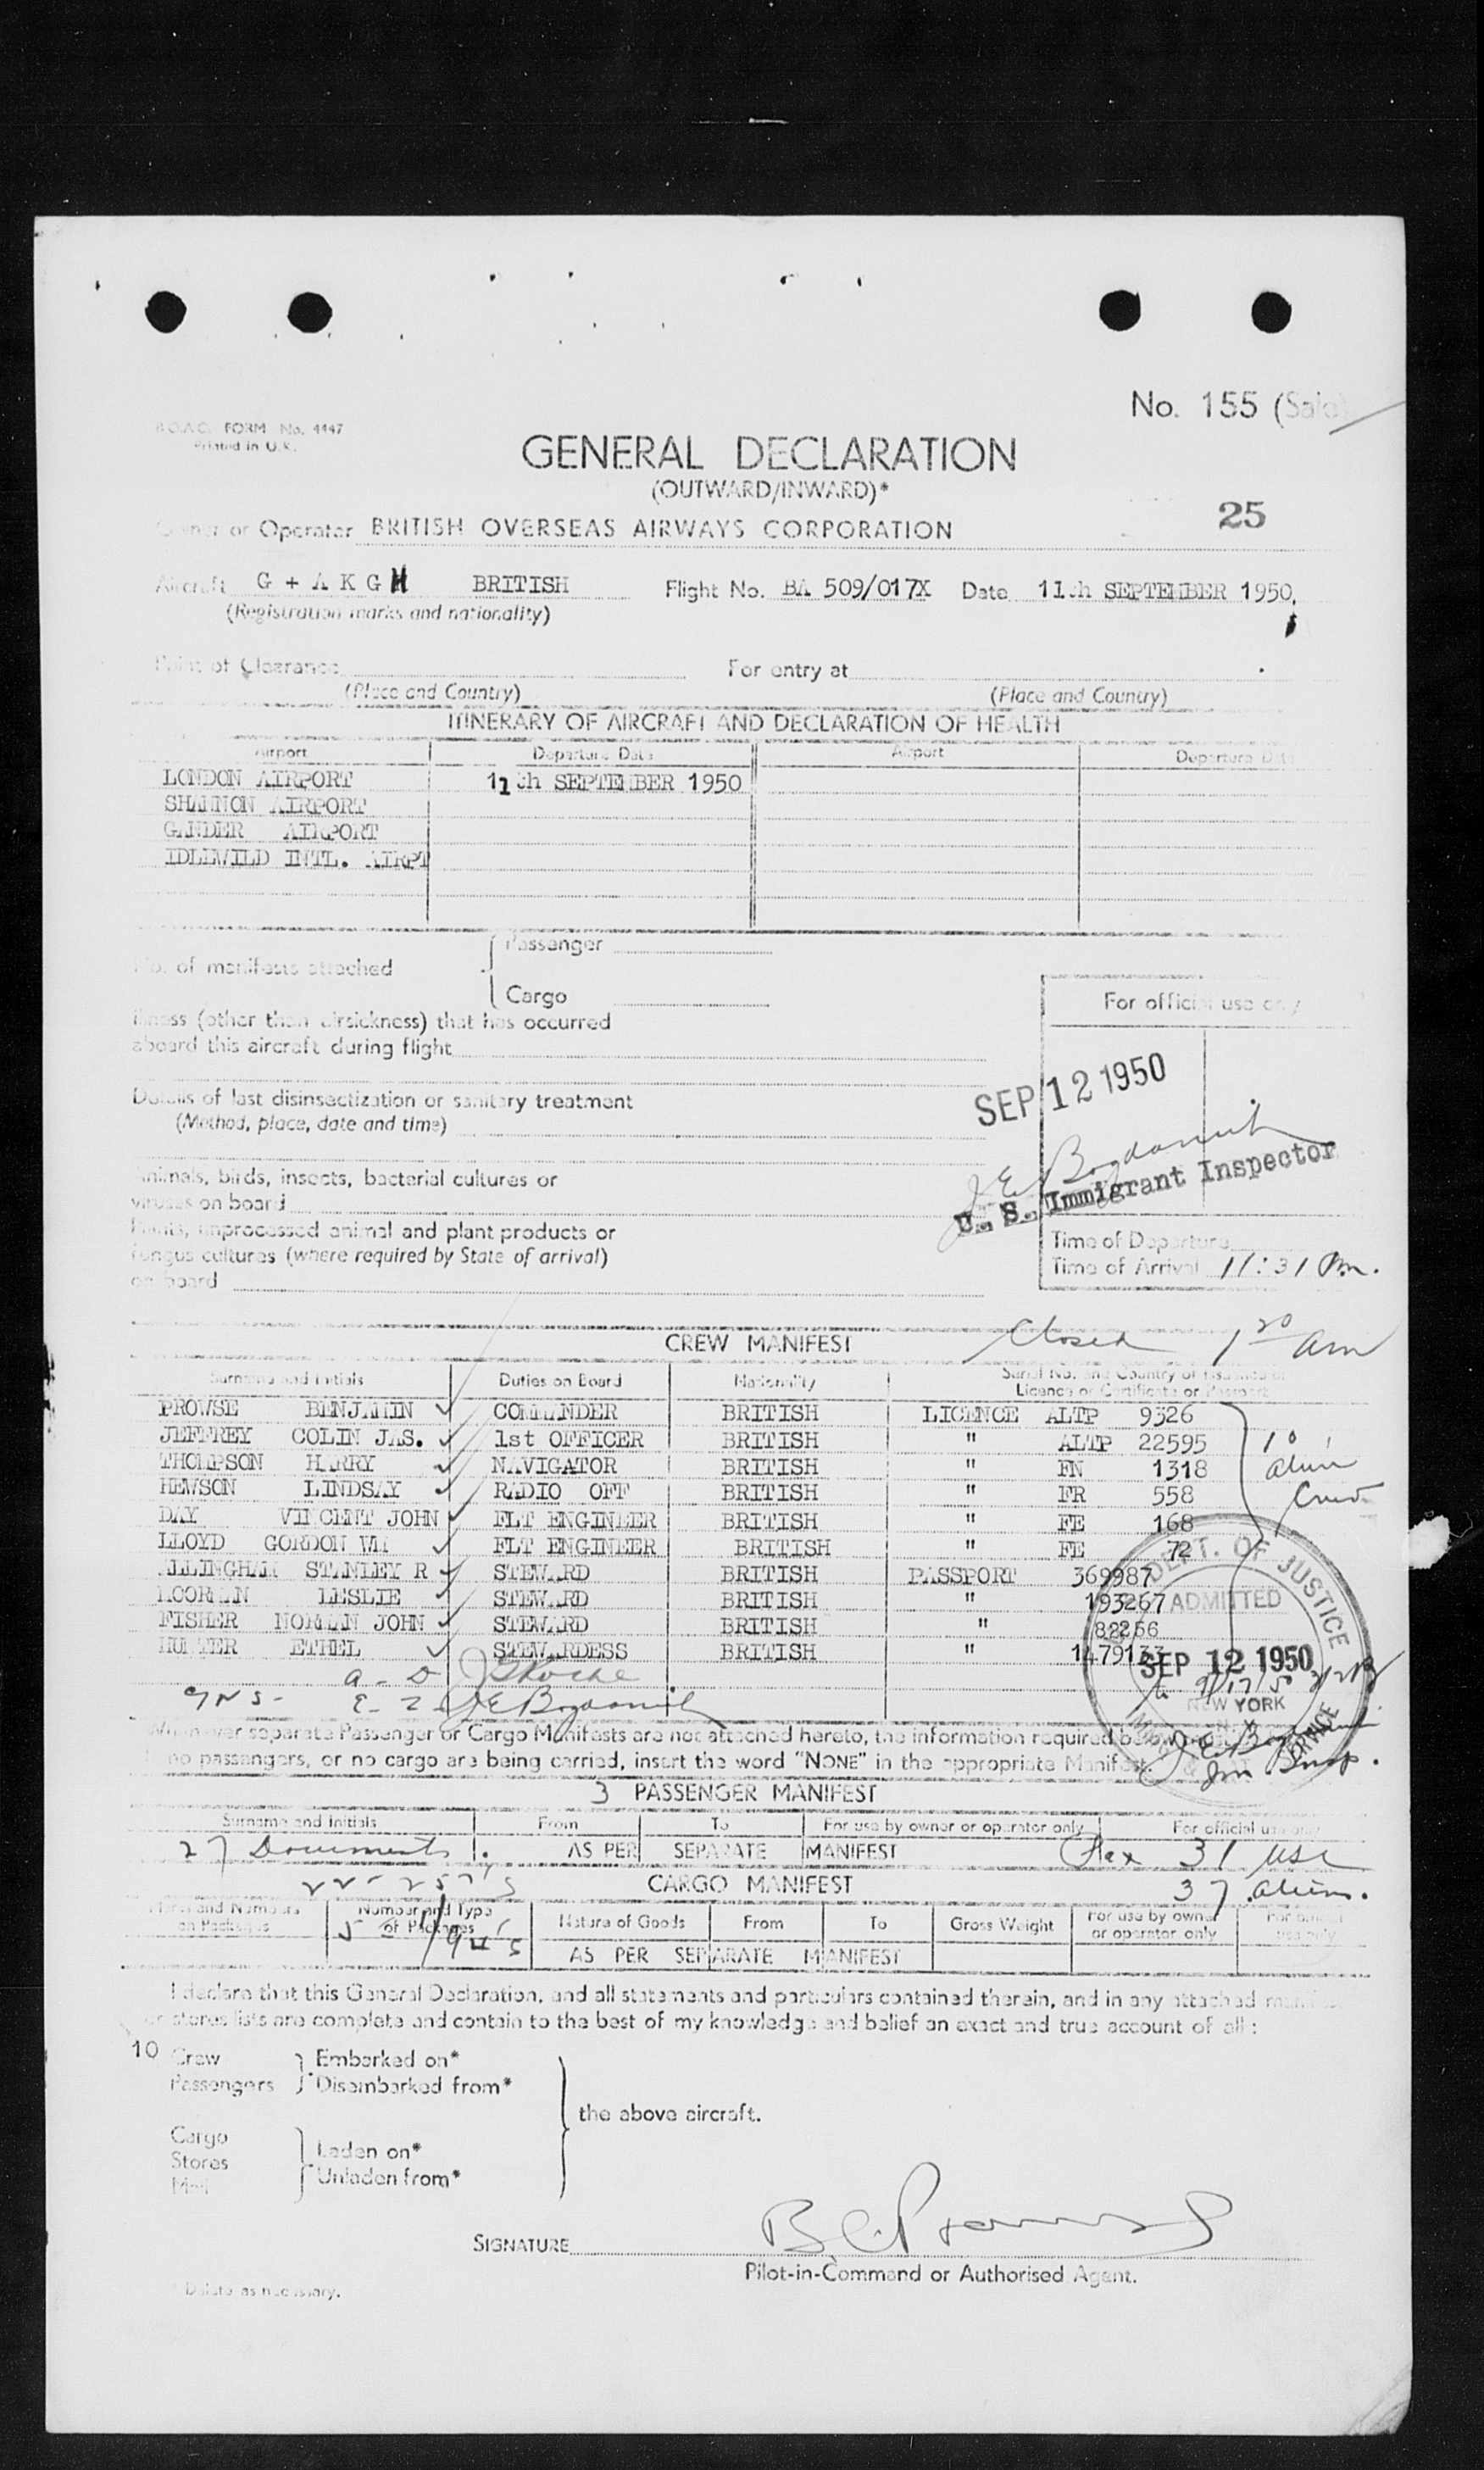 No. 155 (Sale)
B.O.A.C. FORM No. 4447
Printed in U.K.
GENERAL DECLARATION
(OUTWARD/INWARD)*
25
Owner or Operator BRITISH OVERSEAS AIRWAYS CORPORATION
Aircraft G + A K G H BRITISH Flight No. BA 509/017X Date 11th SEPTEMBER 1950.
(Registration marks and nationality)
Point of Clearance For entry at
(Place and Country) (Place and Country)
ITINERARY OF AIRCRAFT AND DECLARATION OF HEALTH
Airport Departure Date Airport Departure Date
LONDON AIRPORT 11th SEPTEMBER 1950
SHANNON AIRPORT
GANDER AIRPORT
IDLEWILD INTL. AIRPT
No. of manifests attached { Passenger
Cargo
For official use only
Illness (other than airsickness) that has occurred
aboard this aircraft during flight
SEP 12 1950
Details of last disinsectization or sanitary treatment
(Method, place, date and time)
J E Bogdanich
U. S. Immigrant Inspector
Animals, birds, insects, bacterial cultures or
viruses on board
Plants, unprocessed animal and plant products or
fungus cultures (where required by State of arrival)
on board
Time of Departure
Time of Arrival 11:31 Pm.
CREW MANIFEST
Closed 1 20 am
Surname and Initials Duties on Board Nationality Serial No. and Country of Issuance of
Licence or Certificate or Passport
PROWSE BENJAMIN ✓ COMMANDER BRITISH LICENCE ALTP 9326
JEFFREY COLIN JAS. ✓ 1st OFFICER BRITISH " ALTP 22595 10
THOMPSON HARRY ✓ NAVIGATOR BRITISH " FN 1318 alien
HEWSON LINDSAY ✓ RADIO OFF BRITISH " FR 558 Crew
DAY VINCENT JOHN ✓ FLT ENGINEER BRITISH " FE 168
LLOYD GORDON WM ✓ FLT ENGINEER BRITISH " FE 72
ALLINGHAM STANLEY R ✓ STEWARD BRITISH PASSPORT 369987
MOORMAN LESLIE ✓ STEWARD BRITISH " 193267
FISHER NORMAN JOHN ✓ STEWARD BRITISH " 82256
HUNTER ETHEL ✓ STEWARDESS BRITISH " 1479133
DEPT. OF JUSTICE
ADMITTED
SEP 12 1950
NEW YORK
SERVICE
a - D J Roche
INS - E - Z J E Bogdanich
Imm Insp.
Whenever separate Passenger or Cargo Manifests are not attached hereto, the information required below
no passengers, or no cargo are being carried, insert the word "NONE" in the appropriate Manifest.
3 PASSENGER MANIFEST
Surname and Initials From To For use by owner or operator only For official use only
27 Documents AS PER SEPARATE MANIFEST Pax 31 USC
CARGO MANIFEST
37 aliens.
22 - 257's
Marks and Numbers
on Packages Number and Type
of Packages Nature of Goods From To Gross Weight For use by owner
or operator only For official
use only
5 - 94's
AS PER SEPARATE MANIFEST
I declare that this General Declaration, and all statements and particulars contained therein, and in any attached
or stores lists are complete and contain to the best of my knowledge and belief an exact and true account of all :
10 Crew } Embarked on*
Passengers } Disembarked from*
the above aircraft.
Cargo
Stores } Laden on*
Mail Unladen from*
B C Prowse
SIGNATURE
Pilot-in-Command or Authorised Agent.
* Delete as necessary.